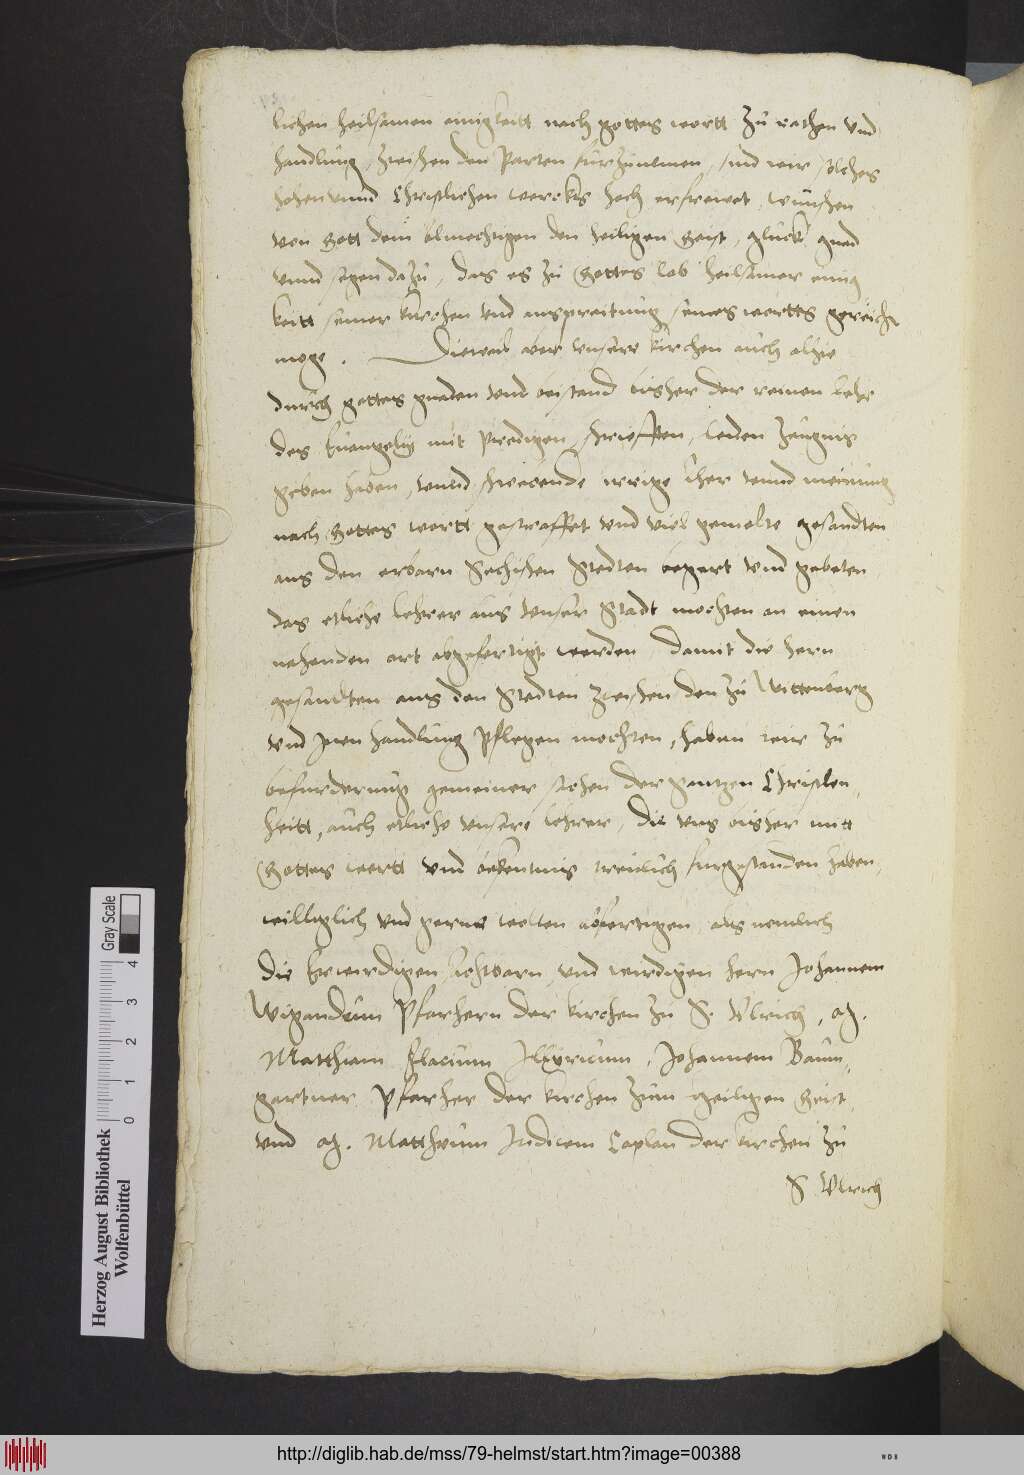 lichen heilsamen einigkeitt nach gottes wortt zu rathen vnd
handlung, zwischen den Parten furzunemen, sind wir solches
hohen vnnd Christlichen wercks hoch erfrewet, wunschen
von Gott dem almechtigen den heiligen Geist, gluck, gnad
vnnd segen dazu, das es zu Gottes lob heilsamer einig
keitt seiner kirchen vnd ausspreitung seines worttes gereiche
moge. Dieweil aber vnsere kirchen auch alhie
durch gottes gnaden vnd beistand bisher der reinen lehr
des Euangelij mit predigen, schriefften, leiden zeugnis
geben haben, vnnd schwebende irrige lher vnnd meinung
nach Gottes wortt gestraffet vnd viel gemelte gesandten
aus den erbarn Sechischen Stedten begert vnd gebeten
das etliche lehrer aus vnser Stadt mochten an einen
nahenden ort abgefertigt werden, damit die hern
gesandten aus den Stedten zwischen den zu Wittenberg
vnd Inen handlung pflegen mochten, haben wir zu
befurderung gemeiner sachen der gantzen Christen,
heitt, auch etliche vnsere lehrer, die vns bisher mitt
Gottes wortt vnd bekentnis trewlich furgestanden haben,
williglich vnd gerne wolten abfertigen, als nemlich
die Erwirdigen, Achtbarn, vnd wirdigen hern Johannem
Wigandum Pfarhern der kirchen zu S. Vlrich, M.
Matthiam Flacium Illyricum, Johannem Baum,
gartner Pfarher der kirchen zum heiligen Geist
vnd M. Mattheum Iudicem Caplan der kirchen zu
S Vlrich
Herzog August Bibliothek
Wolfenbüttel
0 1 2 3 4
Gray Scale
http://diglib.hab.de/mss/79-helmst/start.htm?image=00388
WDB